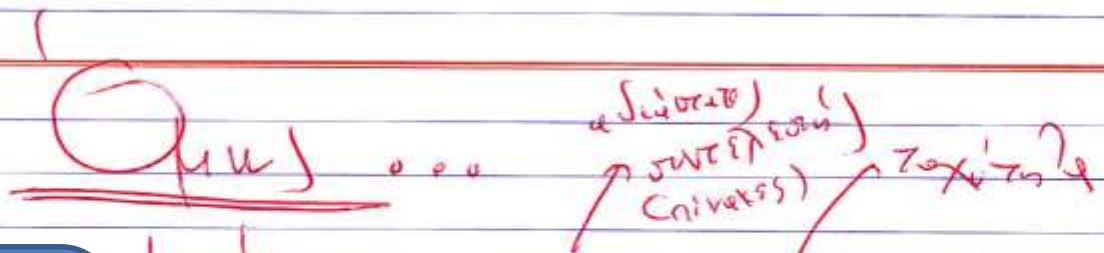 Όμως ...
αδιάστατοι
συντελεστές
(πίνακες)
ταχύτητα